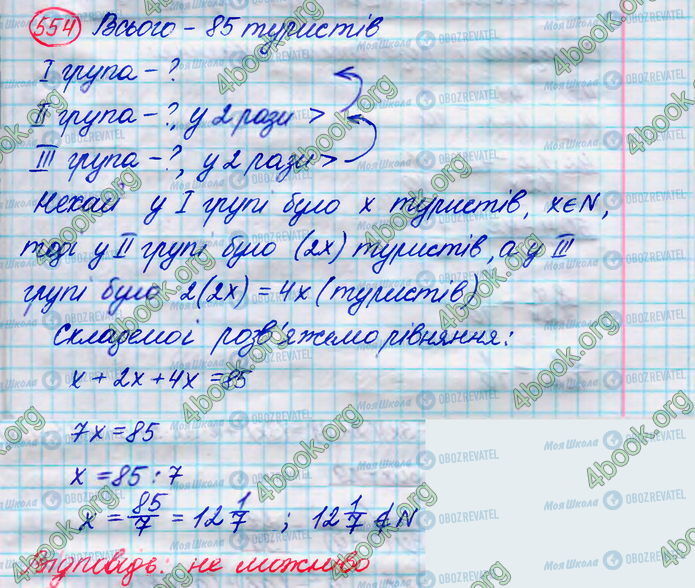 554 Всього – 85 туристів
I група – ?
II група – ?, у 2 рази >
III група – ?, у 2 рази >
Нехай у I групі було x туристів, x∈N,
тоді у II групі було (2x) туристів, а у III
групі було 2(2x) = 4x (туристів)
Складемо і розв'яжемо рівняння:
x + 2x + 4x = 85
7x = 85
x = 85 : 7
x = 85/7 = 12 1/7 ; 12 1/7 ∉ N
Відповідь: не можливо
4book.org
Моя Школа OBOZREVATEL